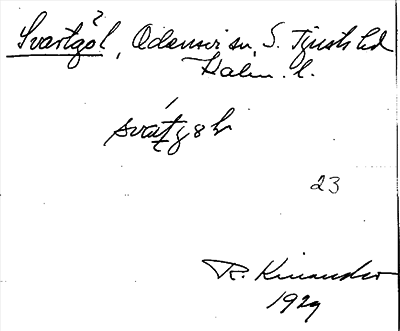 Svartgöl, Odensvi sn, S. Tjusts hd
Kalm. l.
23
R. Kinander
1929